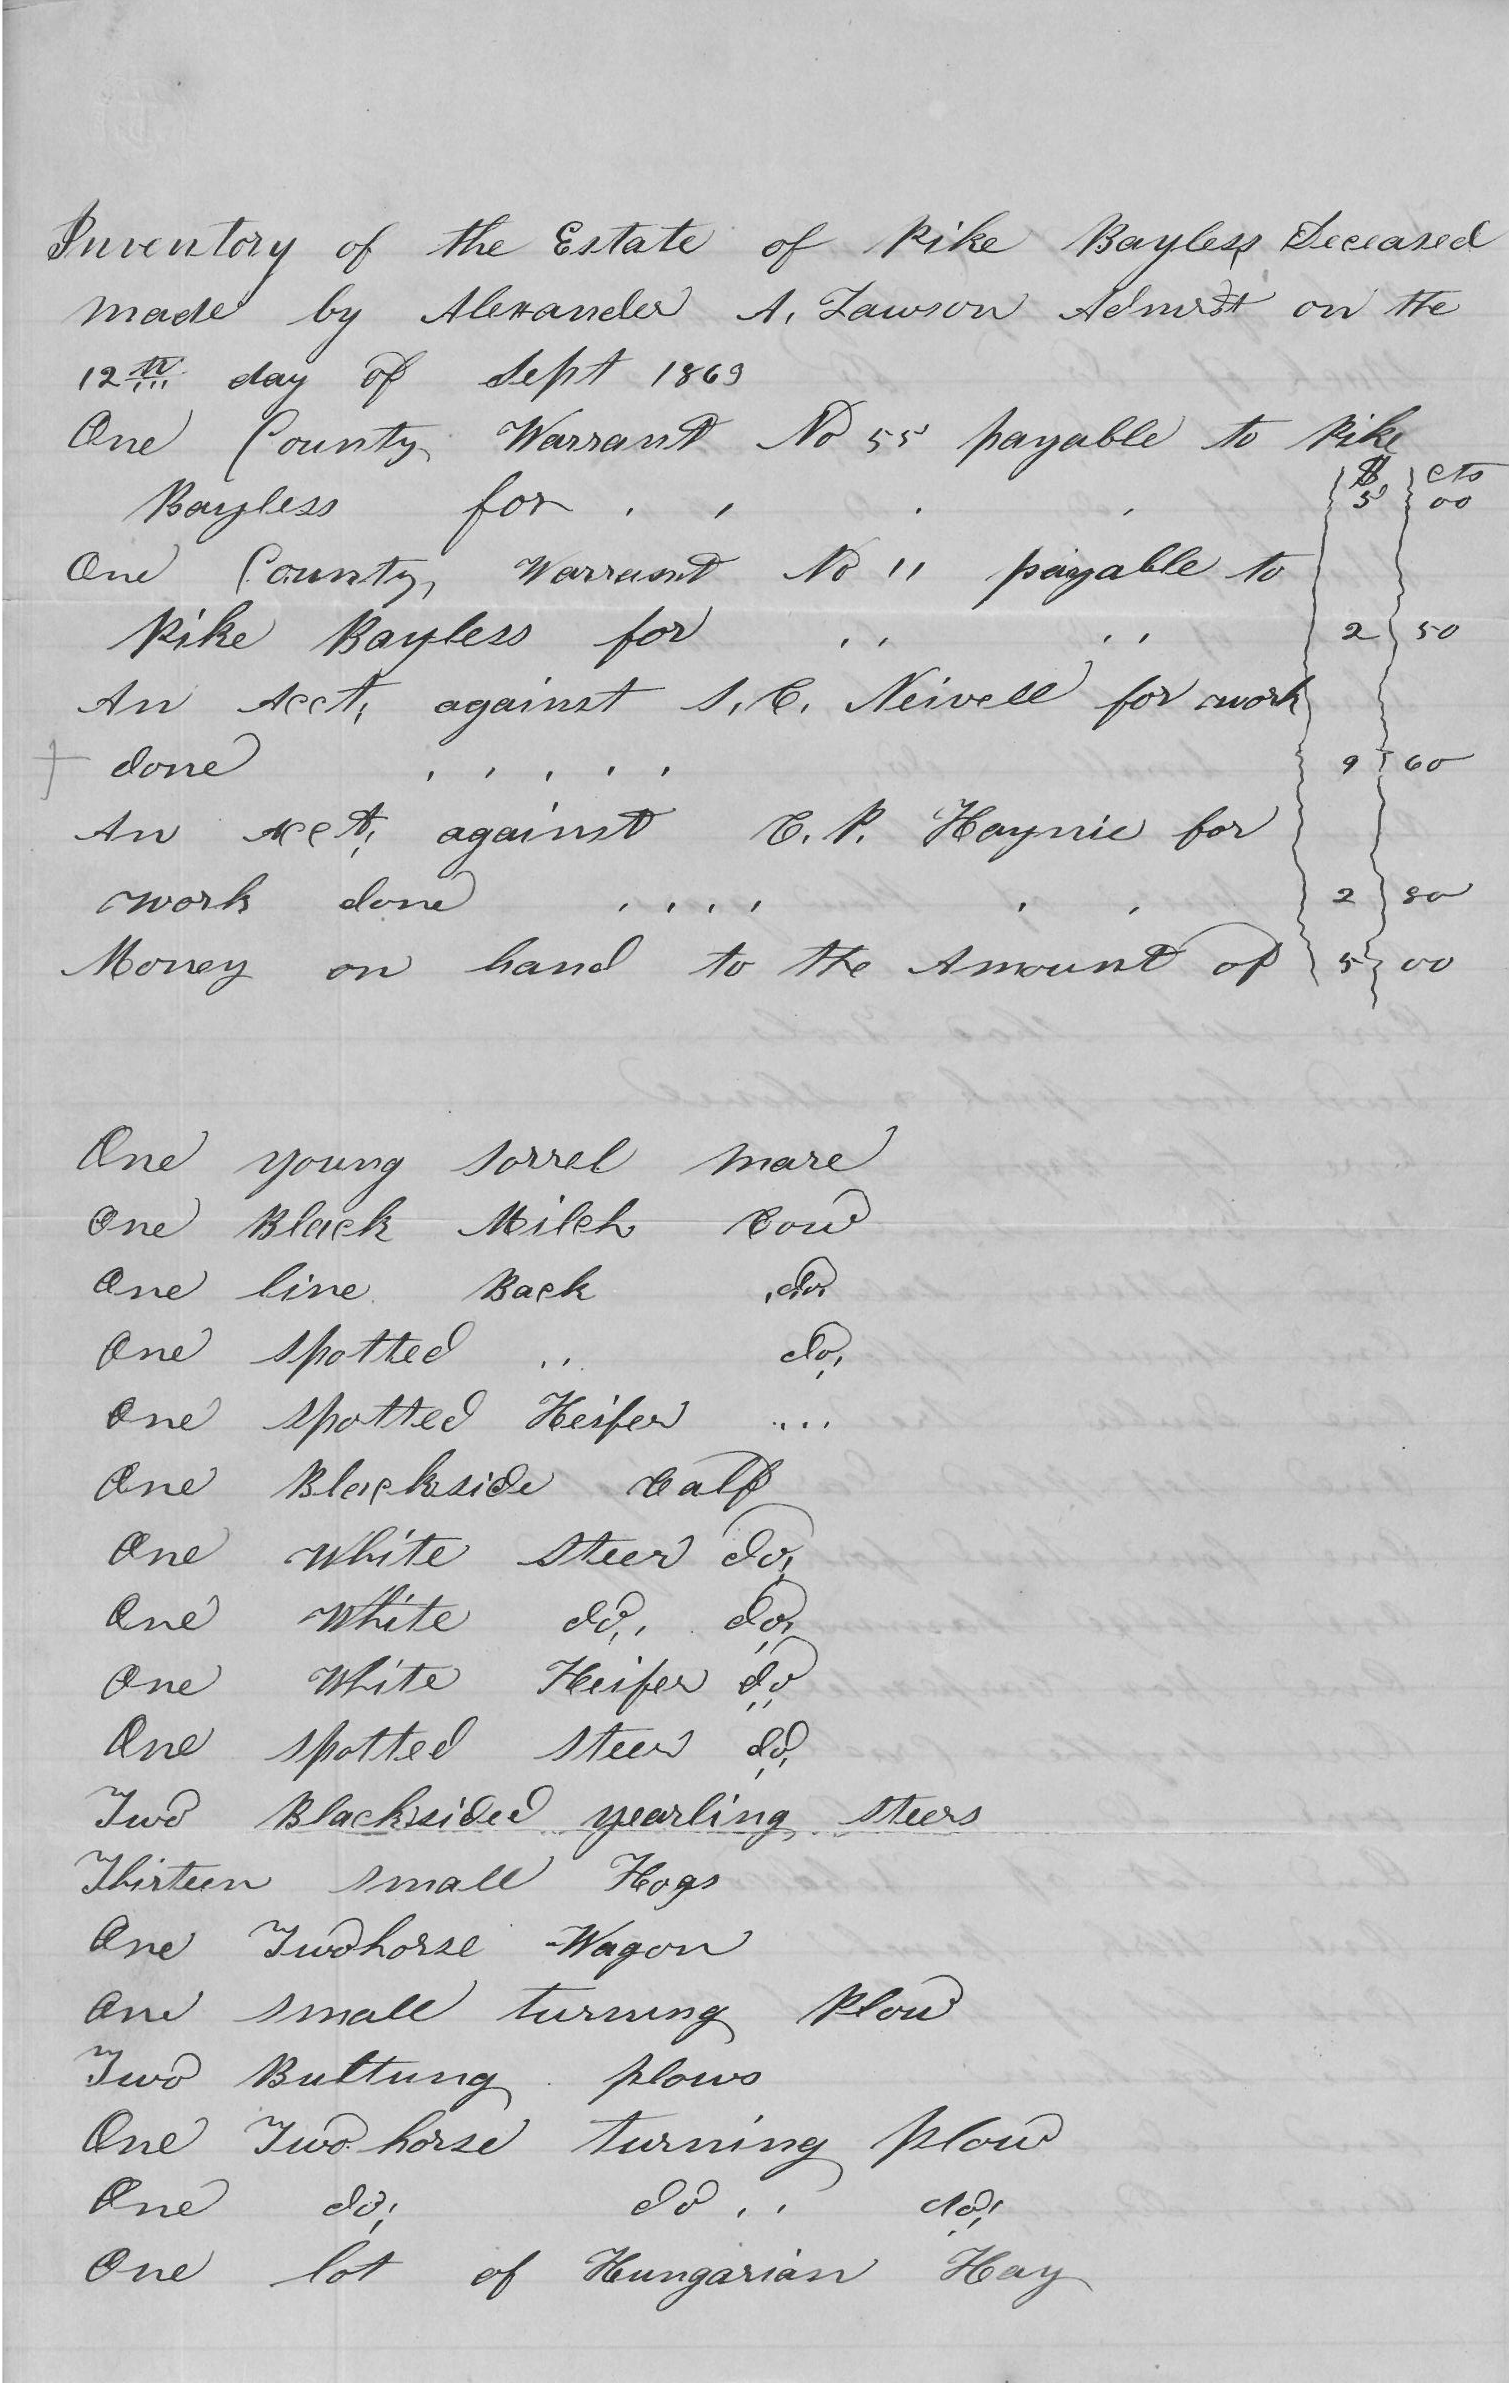 Inventory of the Estate of Pike Bayless Deceased
made by Alexander A. Lawson Admrst on the
12th day of Sept 1869
One County Warrant No 55 payable to Pike
$ cts
Bayless for . , . . 5 00
One County, Warrant No 11 payable to
Pike Bayless for ,, ,, 2 50
An Acct, against S. C. Neivell for work
done , , , , , 9 60
An Acct, against C. P. Haynie for
work done , , , , , , 2 80
Money on hand to the Amount of 5 00
One young sorrel mare
One Black Milch Cow
One line Back do,
One spotted ,, do,
One spotted Heifer ....
One Blackside Calf
One White steer do,
One White do,, do,
One White Heifer do
One spotted steer do,
Two Blacksided yearling steers
Thirteen small Hogs
One Twohorse Wagon
One small turning Plow
Two Bultung plows
One Two horse turning plow
One do, do ,, do,
One lot of Hungarian Hay